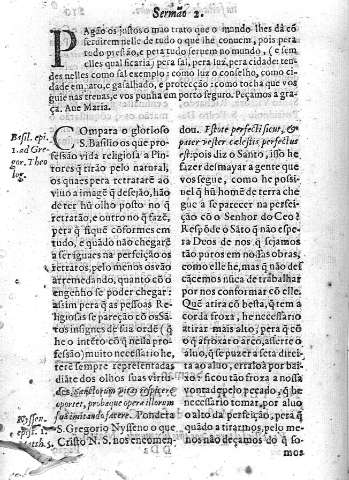 Sermão 2.
PAgão os justos o mao trato que o mundo lhes dá cõ
seruirem nelle de tudo o que lhe conuem; pois pera
tudo prestão, e pera tudo seruem no mundo, (e sem
elles qual ficaria) pera sal, pera luz, pera cidade: ten-
des nelles como sal exemplo: como luz o conselho, como ci-
dade em, aro, e gasalhado, e protecção: como tocha que vos
guie nas treuas, e vos punha em porto seguro. Peçamos a gra-
ça. Aue Maria.
Basil. epi.
1. ad Gre-
gor. Theo
log.
COmpara o glorioso
S. Basilio os que pro-
fessão vida religiosa a Pin-
tores q̃ tirão pelo natural,
os quaes pera retratarẽ ao
viuo a image q̃ desejão, hão
de ter hũ olho posto no q̃
retratão, e outro no q̃ fazẽ,
pera q̃ fique cõforme em
tudo, e quãdo não chegarẽ
a ser iguaes na perfeição os
retratos, pelo menos os vão
arremedando, quanto cõ o
engenho se poder chegar:
assim pera q̃ as pessoas Re-
ligiosas se pareção cõ os Sã-
tos insignes de sua ordẽ (q̃
he o intẽto cõ q̃ nella pro-
fessão) muito necessario he,
terẽ sempre representadas
diãte dos olhos suas virtu-
des. Sanctorum vitas inspicere
oportet, probaque opera illorum
sua imitando facere. Pondera
S. Gregorio Nysseno o que
Cristo N. S. nos encomen-
Nyssen.
epist. 1.
Matth. 5.
dou. Estote perfecti sicut, &
pater vester cœlestis perfectus
est: pois diz o Santo, isso he
fazer desmayar a gente que
vos segue, como he possi-
uel q̃ hũ home de terra che
gue a se parecer na perfei-
ção cõ o Senhor do Ceo?
Respõde o Sãto q̃ não espe-
ra Deos de nos q̃ sejamos
tão puros em nossas obras,
como elle he, mas q̃ não des
cãcemos nũca de trabalhar
por nos conformar cõ elle.
Que atira cõ bésta, q̃ tem a
corda froxa, he necessario
atirar mais alto, pera q̃ cõ
o q̃ afroxar o arco, asserte o
aluo, q̃ se puzer a seta direi-
ta ao aluo, erraloá por bai-
xo: ficou tão froxa a nossa
vontade pelo peccado, q̃ he
necessario tomar, por aluo
o alto da perfeição, pera q̃
quãdo a tirarmos, pelo me-
nos não deçamos do q̃ so-
mos